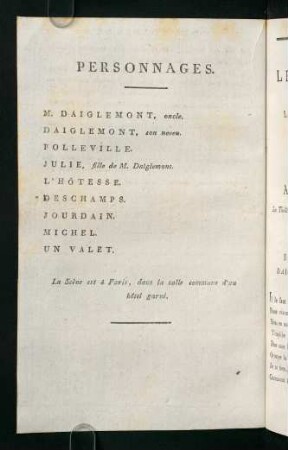 PERSONNAGES.
M. DAIGLEMONT, oncle.
DAIGLEMONT, son neveu.
FOLLEVILLE.
JULIE, fille de M. Daiglemont.
L'HÔTESSE.
DESCHAMPS.
JOURDAIN.
MICHEL.
UN VALET.
La Scène est à Paris, dans la salle commune d'un
hôtel garni.